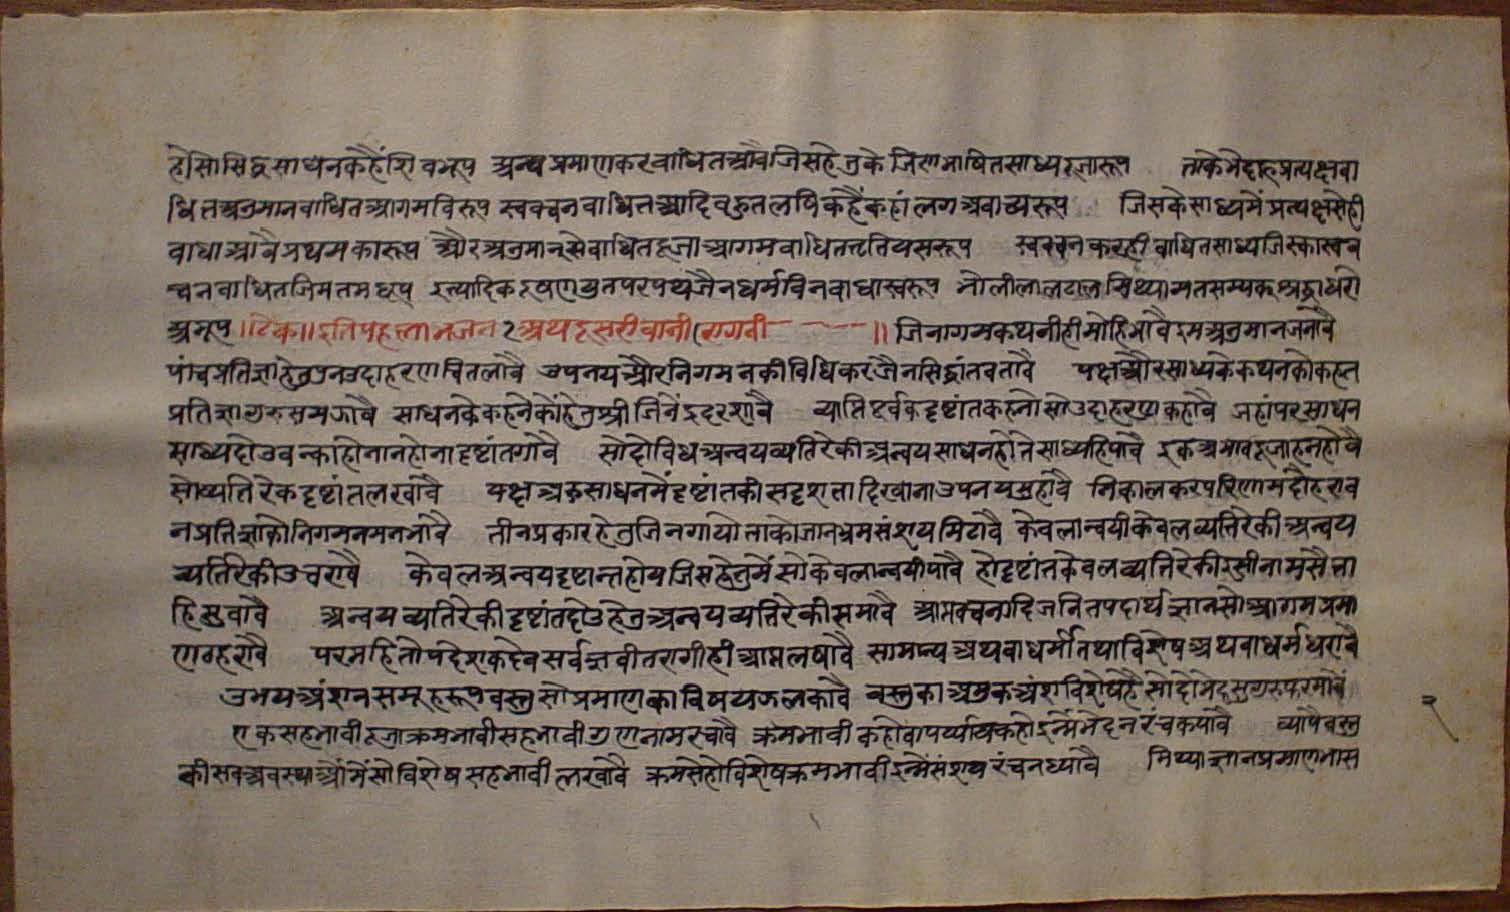 हे सो सिद्ध साधन कहैं शिवभूप अन्य प्रमाण कर बाधित आवै जिस हेतु के जिण भाषित साध्य दूजा रूप ताके भेद बहु प्रत्यक्ष बा
धित अनुमान बाधित आगम विरूप स्ववचन बाधित आदि बहुत लषि कहैं कहां लग अवाच्य रूप जिसके साध्य में प्रत्यक्ष सेही
बाधा आवै प्रथम का रूप और अनुमान से बाधित दूजा आगम बाधित तृतिय सरूप स्ववचन कर ही बाधित साध्य जिस्का स्वव
चन बाधित जिम तम धूप इत्यादिक दूषण युत पर पथ जैन धर्म विन बाधा स्वरूप मिथ्या मत सम्यक् श्रद्धा धरो
अभूप ॥ टेक ॥ इति पहला २ अथ दूसरी बानी रागनी ॥ जिनागम कथनी ही मोहि भावै इम अनुमान जनावै
पांच प्रतिज्ञा हेतु उदाहरण उपनय और निगमन की विधि कर जैन सिद्धांत बतावै पक्ष और साध्य के कथन को कहत
प्रतिज्ञा गुरु समजावै साधन के कहने कों हेतु श्री जिनेंद्र दरशावै व्याप्ति पूर्वक दृष्टांत कहनो सो उदाहरण कहावै जहां पर साधन
साध्य दोउवन्का होना न होना दृष्टांत गावै सो दो विध अन्वय व्यतिरेकी अन्वय साधन होते साध्य हि पावै इक अभाव दूजा हु न होवै
सो व्यतिरेक दृष्टांत लखावै पक्ष अरु साधन में दृष्टांत की सदृशता दिखाना उपनय निकाल कर परिणाम दोहराव
न प्रतिज्ञा को निगमन मन भावै तीन प्रकार हेतु जिन गायो ताको जान भ्रम संशय मिटावै केवलान्वयी केवल व्यतिरेकी अन्वय
व्यतिरेकी उचरावै केवल अन्वय दृष्टान्त होय जिस हेतु में सो केवलान्वयी पावै हो दृष्टांत केवल व्यतिरेकी इसी नाम सै ता
हि अन्वय व्यतिरेकी दृष्टांत दोउ हेतु अन्वय व्यतिरेकी समावै आप्त वचनादि जनित पदार्थ ज्ञान सो आगम प्रमा
ण ठहरावै परम हितोपदेशक देव सर्वज्ञ वीतरागी ही आप्त लषावै सामान्य अथवा धर्मी तथा विशेष अथवा धर्म धरावै
उभय अंशन समूह रूप वस्तु सो प्रमाण का विषय जलकावै वस्तु का अमुक अंश विशेष है सो दो भेद
२
एक सहभावी दूजा क्रमभावी सहभावी गुण नाम रखावै क्रमभावी कहो वा पर्य्यायक कहो इन्मे भेद न रंचक पावै व्यापै वस्तु
की सब अवस्थाओं में सो विशेष सहभावी लखावै क्रम से हो विशेष क्रमभावी इन्में संशय रंच न ध्यावै मिथ्याज्ञान प्रमाणभास